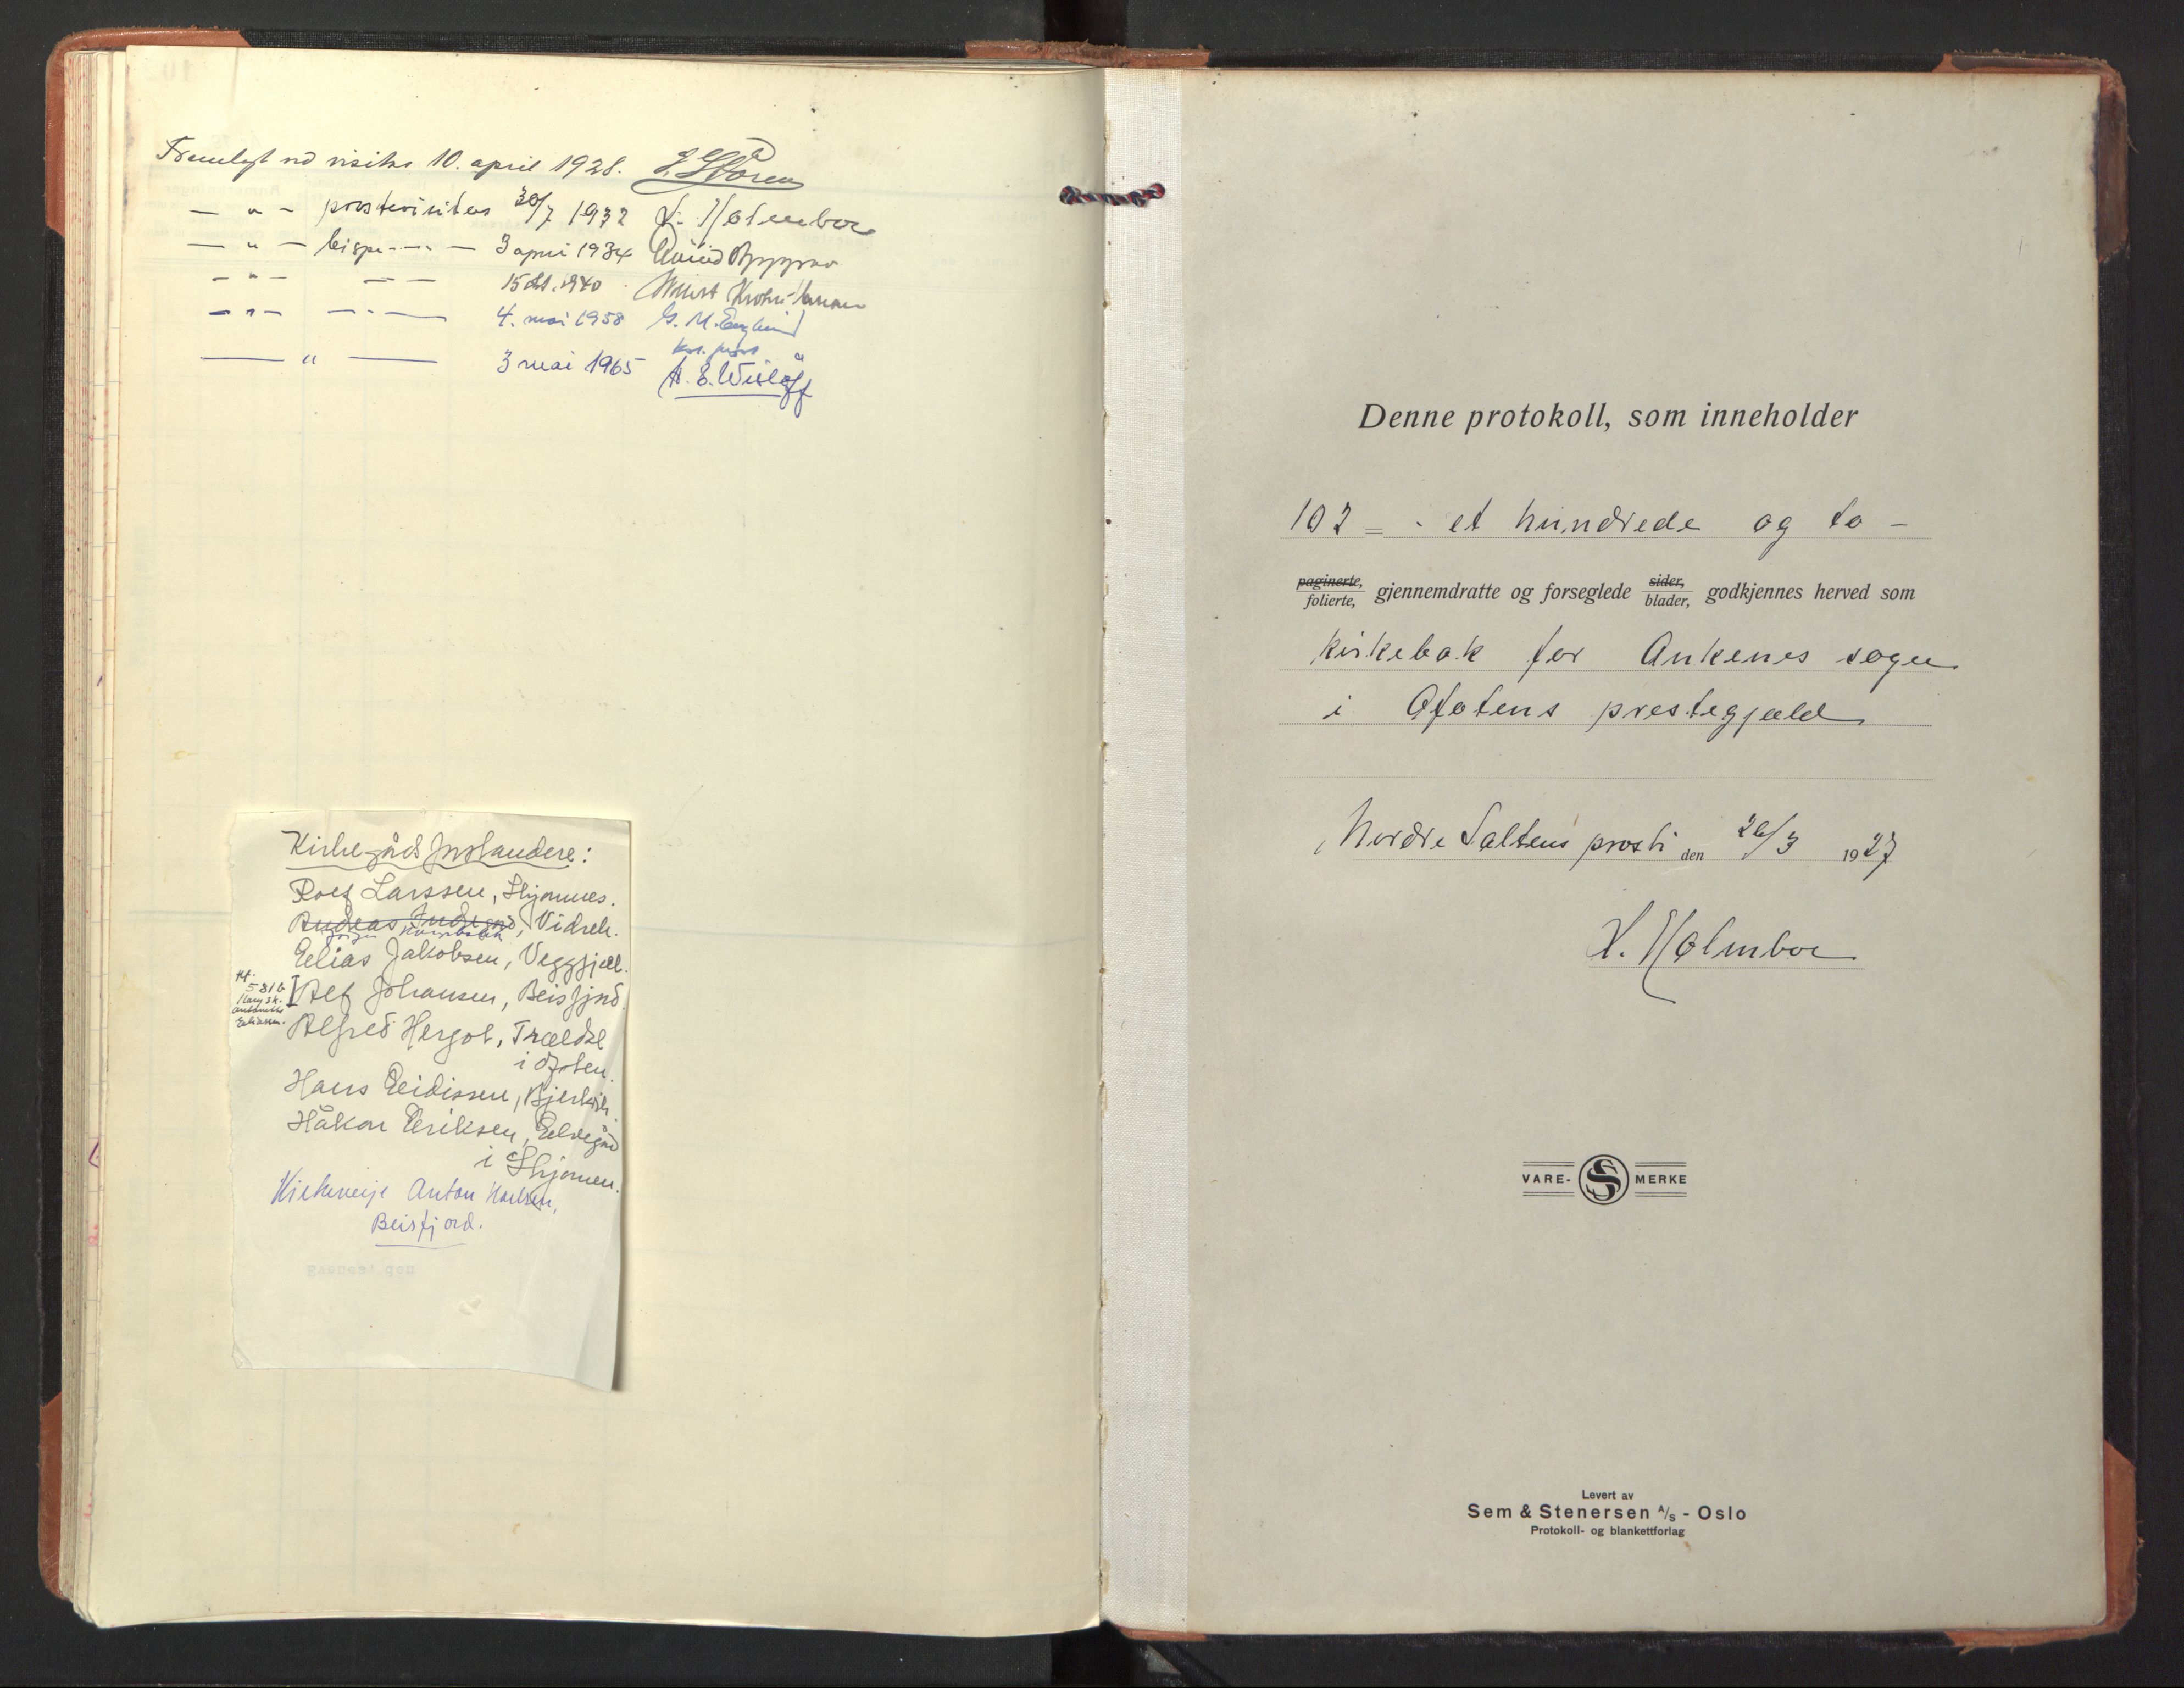 Fremlagt ved visitas 10. april 1928. J. Støren
— " — prostevisitas 30/7 1932 L. Holmboe
— " — bispe- — " — 3 april 1934 Eivind Berggrav
— " — — — 15 1940 Wollert Krohn-Hansen
— " — — " — 4. mai 1958 G. M. Englund
— " — 3 mai 1965 A. E. Wisløff
Kirkegårds
Rolf Larssen, Skjomnes.
Andreas Vidrek.
Elias Jakobsen, Veggfjell.
581b
Alf Johansen, Beisfjord
Eliassen.
Alfred Hergot, Trældal
i Ofoten.
Hans Eidissen, Bjerkvik.
Håkon Eriksen, Elvegård
i Skjomen.
Kirkeverge Anton
Beisfjord.
Evenes, den
Denne protokoll, som inneholder
102 = - et hundrede og to -
paginerte, folierte, gjennemdratte og forseglede sider, blader, godkjennes herved som
kirkebok for Ankenes sogn
i Ofotens prestegjeld
Nordre Saltens prosti den 26/3 1927
L. Holmboe
VARE- S MERKE
Levert av
Sem & Stenersen A/S - Oslo
Protokoll- og blankettforlag